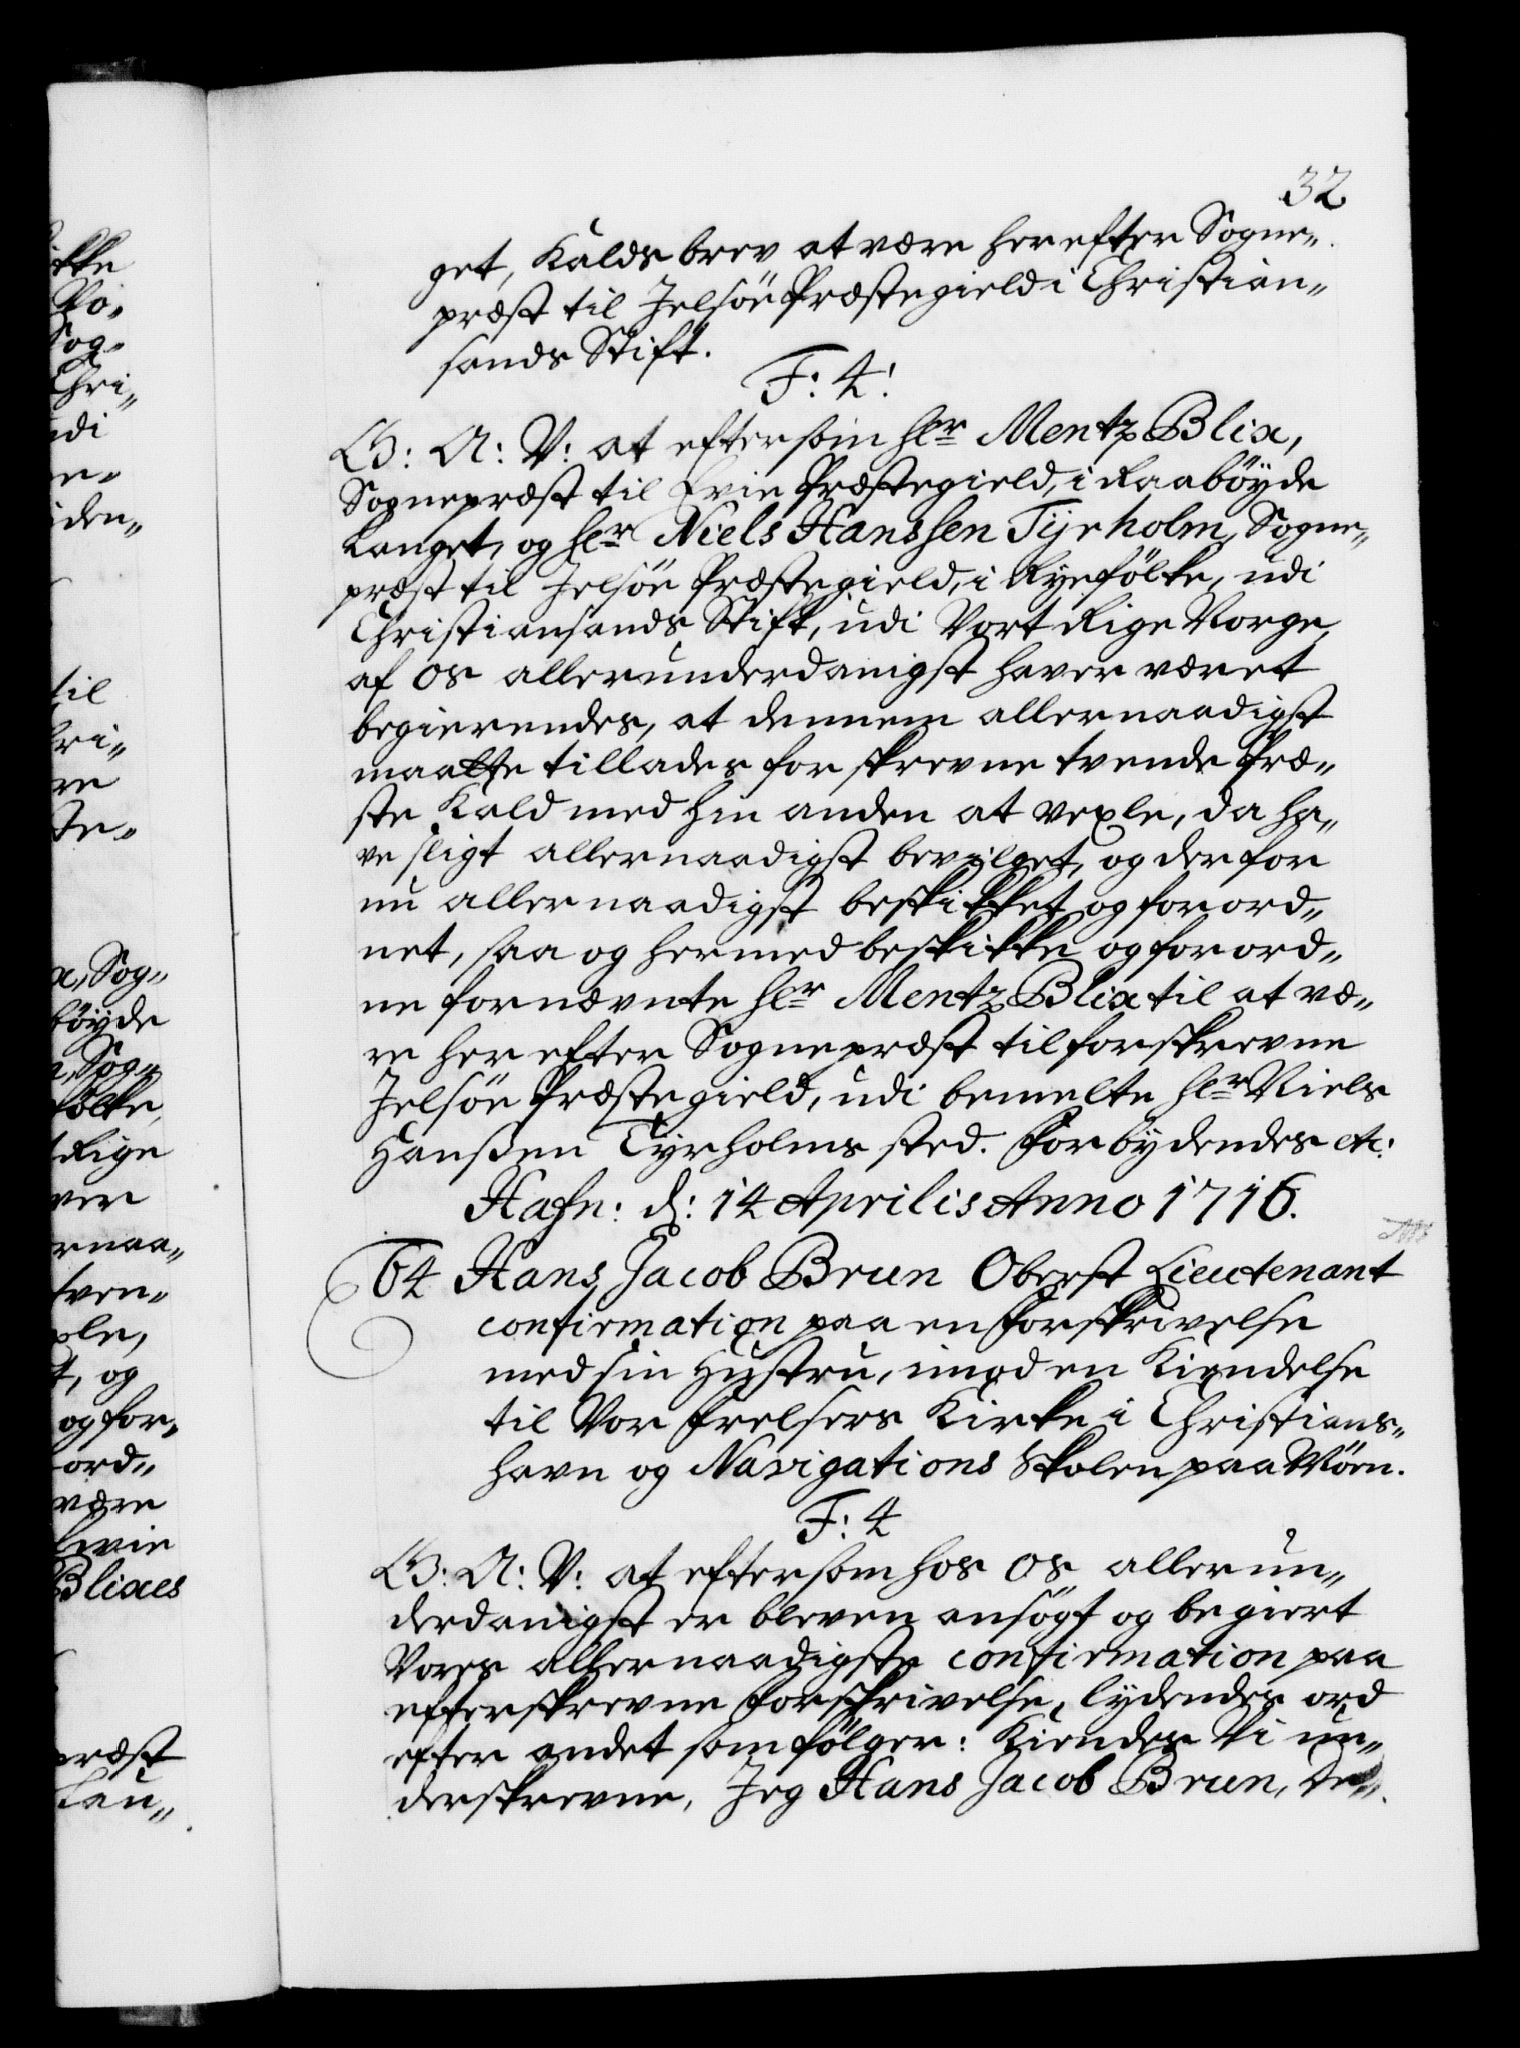 32
get, Kalds brev at være herefter Sogne„
præst til Jelsöe Præstegield i Christian„
sands Stift.
F: 4:
G: A: V: at eftersom Hr Mentz Blix,
Sognepræst til Evie Præstegield, i Raaböyde
Lauget, og Hr Niels Hanssen Tyrholm, Sogne„
præst til Jelsöe Præstegield, i Ryefölke, udi
Christiansands Stift, udi Vort Rige Norge,
af os allerunderdanigst haver været
begierendes, at dennem allernaadigst
maatte tillades forskrevne tvende Præ„
ste Kald med hin anden at vexle, da ha„
ve sligt allernaadigst bevilget, og derfor
nu allernaadigst beskikket og forord„
net, saa og hermed beskikke og forord„
ne fornævnte Hr Mentz Blix til at væ„
re herefter Sognepræst til forskrevne
Jelsöe Præstegield, udi bemelte Hr Niels
Hanßen Tyrholms sted. Forbydendes etc:
Hafn: d: 14 Aprilis Anno 1716.
64 Hans Jacob Brun Oberst Lieutenant
confirmation paa en Forskrivelse
med sin Hustru, imod en Kiendelse
til Vor Frelsers Kirke i Christians„
havn og Navigations Skolen paa Möen.
F: 4
G: A: V: at eftersom hos os allerun„
derdanigst er bleven ansögt og begiert
Vores allernaadigste confirmation paa
efterskrevne Forskrivelse, lydendes ord
efter andet som fölger: Kiendes Vi un„
derskrevne, Jeg Hans Jacob Brun, De„
ikke
Sog„
Chri„
udi
iden„
til
re
ste„
x, Sog„
böyde
n, Sog„
fölke,
Rige
ver
rnaa„
tven„
xle,
t, og
og for„
ord„
være
Evie
Blixes
præst
Lau„